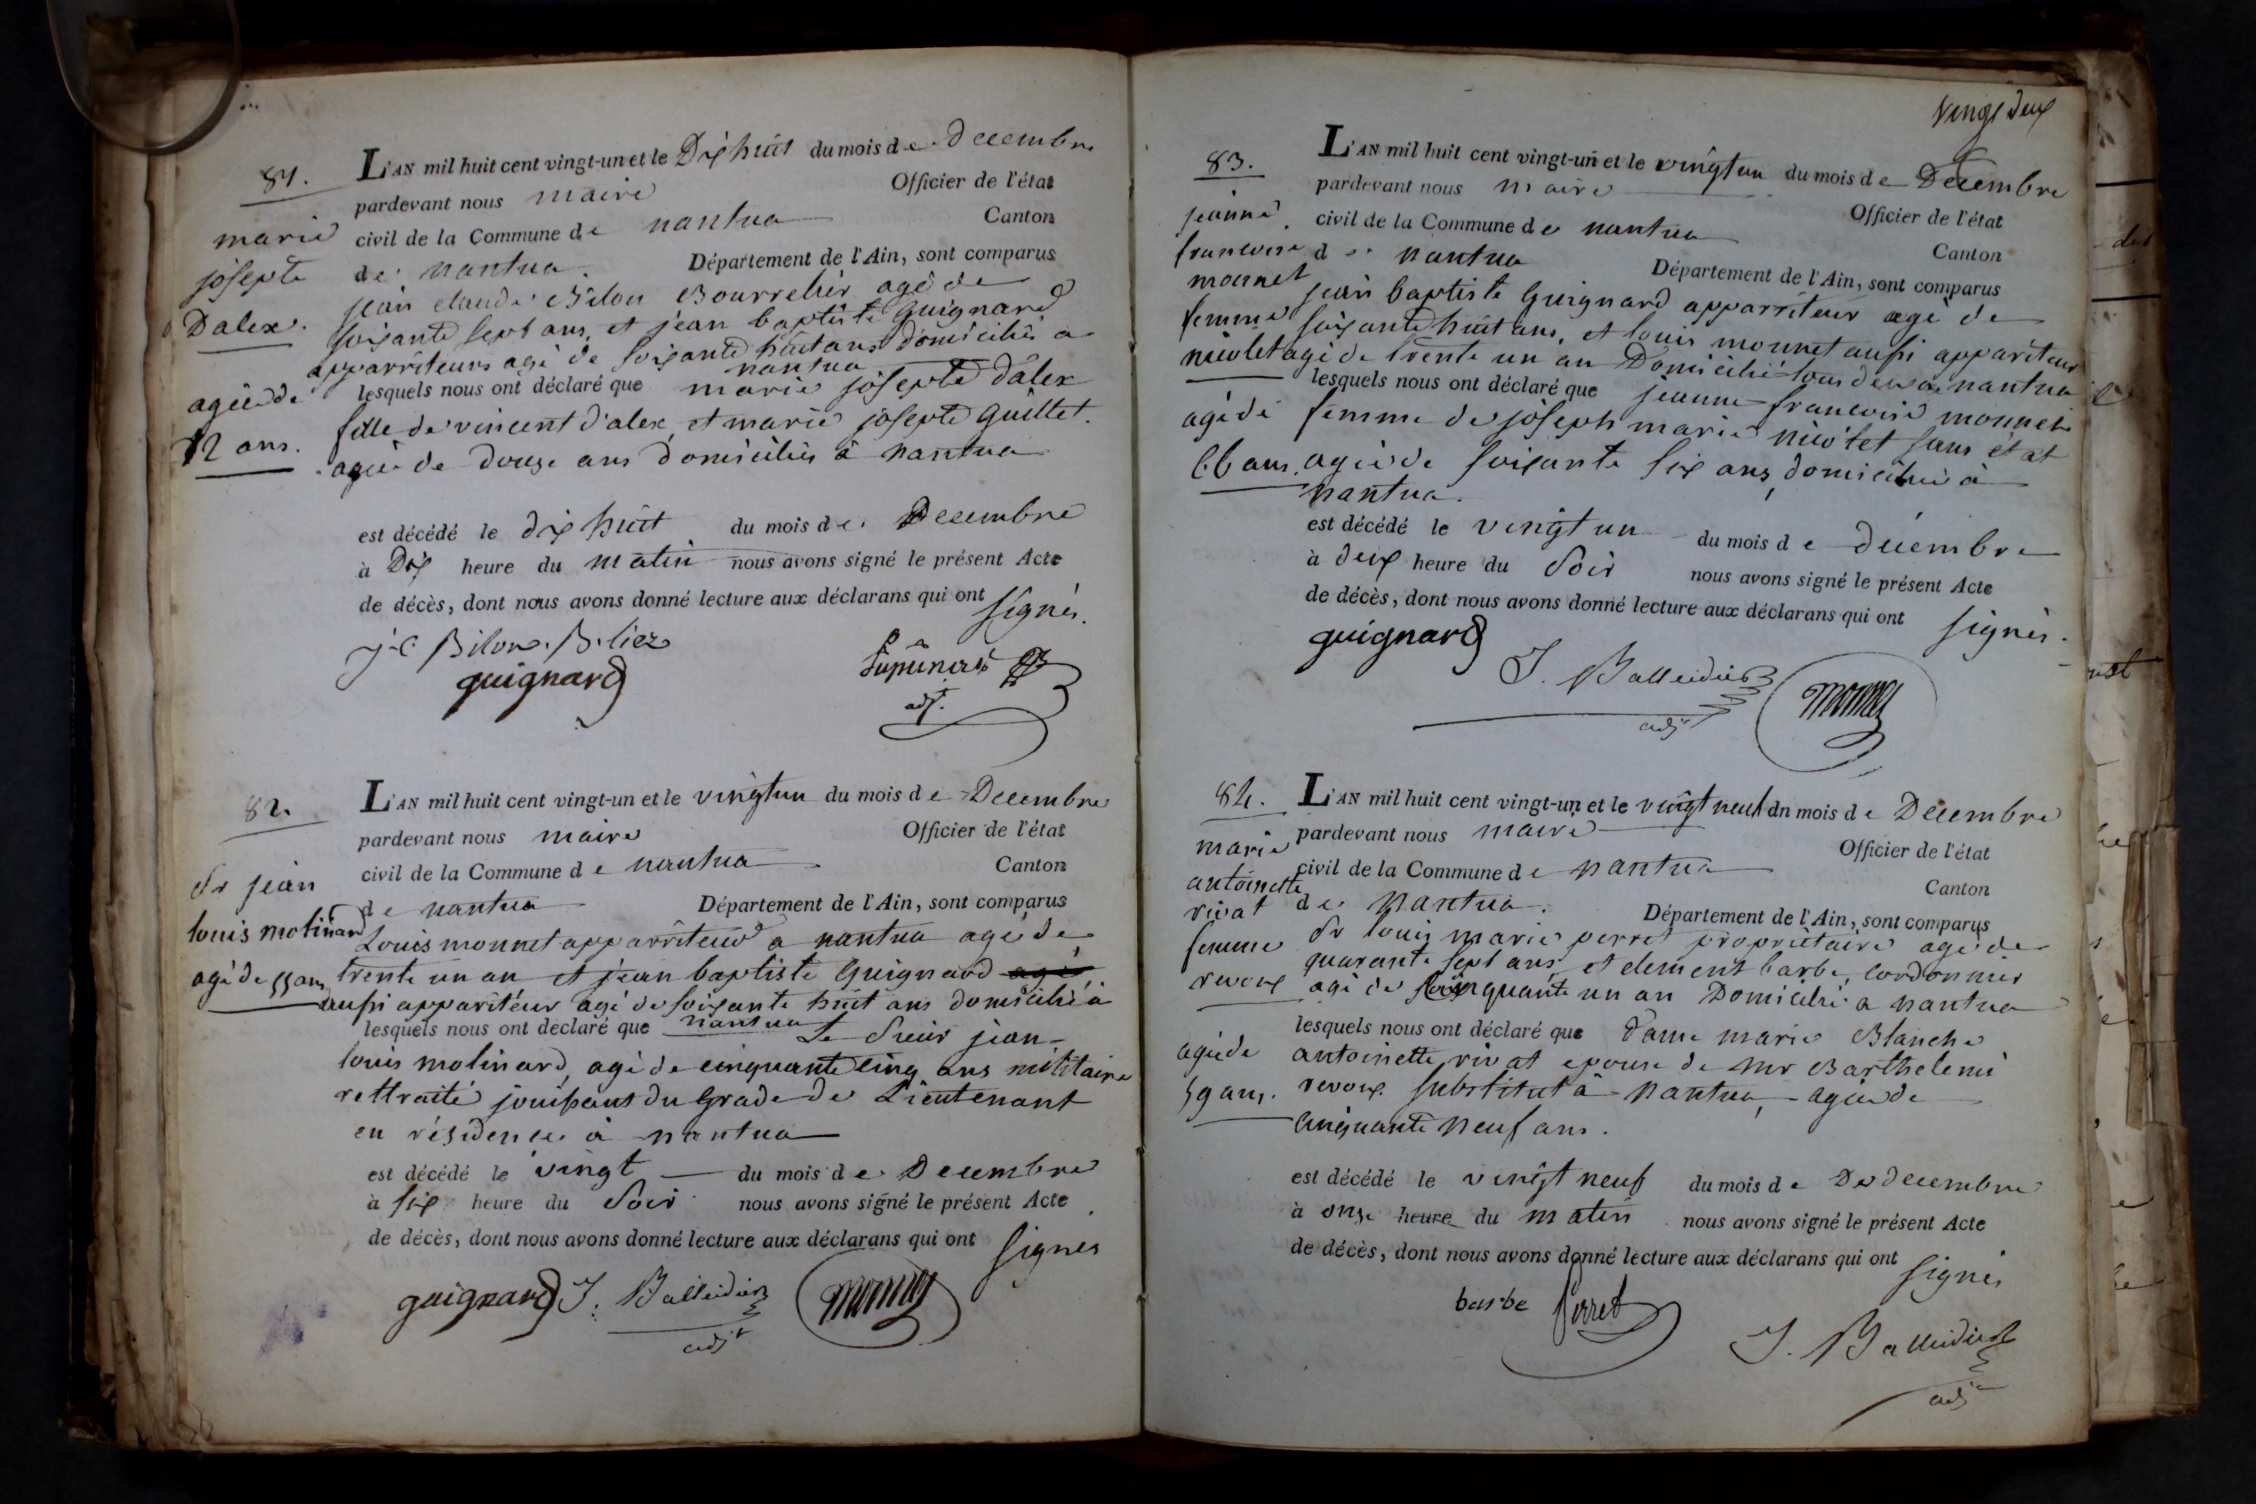 81.
marie
josepte
Dalex.
agée de
12 ans.
L'AN mil huit cent vingt-un et le Dix huit du mois de Decembre
pardevant nous maire Officier de l'état
civil de la Commune de nantua Canton
de nantua. Département de l'Ain, sont comparus
jean claude Bilon Bourrelier agé de
soixante sept ans, et jean baptiste Guignard
apparriteurs agé de soixante huit ans domiciliés a
nantua
lesquels nous ont déclaré que marie josepte d'alex
fille de vincent d'alex, et marie josepte Guillet.
agée de douze ans domiciliés à nantua
est décédé le dix huit du mois de Decembre
à Dix heure du matin nous avons signé le présent Acte
de décès, dont nous avons donné lecture aux déclarans qui ont signés.
j-C Bilon
guignard
adjt.
82.
Sr jean
louis molinard
agé de 55 ans
L'AN mil huit cent vingt-un et le vingt un du mois de Decembre
pardevant nous maire Officier de l'état
civil de la Commune de nantua Canton
de nantua Département de l'Ain, sont comparus
Louis monnet apparriteur a nantua agé de
trente un an et jean baptiste Guignard agé
aussi appariteur agé de soixante huit ans domicilié à
lesquels nous ont déclaré que nantua Le Sieur jean
louis molinard, agé de cinquante cinq ans militaire
rettraité jouissant du Grade de Lieutenant
en résidence à nantua
est décédé le vingt du mois de Decembre
à six heure du Soir nous avons signé le présent Acte
de décès, dont nous avons donné lecture aux déclarans qui ont signés
guignard J. Balleidier monnet
adjt
vingt deux
83.
jeanne
francoise
monnet
femme
nicolet
agé de
66 ans.
L'AN mil huit cent vingt-un et le vingt un du mois de Decembre
pardevant nous maire Officier de l'état
civil de la Commune de nantua Canton
de nantua Département de l'Ain, sont comparus
jean baptiste Guignard apparriteur agé de
soixante huit ans, et louis monnet aussi appariteur
agé de trente un an Domicilié tous deux a nantua
lesquels nous ont déclaré que jeanne francoise monnet
femme de joseph marie nicolet sans état
agée de soixante six ans, domiciliée à
nantua.
est décédé le vingt un du mois de décembre
à deux heure du Soir nous avons signé le présent Acte
de décès, dont nous avons donné lecture aux déclarans qui ont signés.
guignard
J. Balleidier monnet
adjt
84.
marie
antoinette
rivat
femme
revoux
agée de
59 ans.
L'AN mil huit cent vingt-un et le vingt neuf du mois de Decembre
pardevant nous maire Officier de l'état
civil de la Commune de nantua Canton
de Nantua. Département de l'Ain, sont comparus
Sr louis marie perret propriétaire agé de
quarante sept ans, et clement barbe, cordonnier
agé de cinquante un an Domicilié a nantua
lesquels nous ont déclaré que dame marie Blanche
antoinette rivat epouse de Mr Barthelemi
revoux substitut à Nantua, agée de
cinquante neuf ans.
est décédé le vingt neuf du mois de De decembre
à onze heure du matin nous avons signé le présent Acte
de décès, dont nous avons donné lecture aux déclarans qui ont signés
barbe Perret
J. Balleidier
adjt